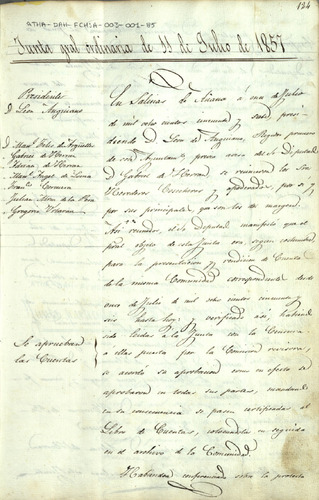 ATHA-DAH-FCHSA-003-001-115
124
Junta gral ordinaria de 11 de Julio de 1857
Presidente
D. Leon Anguiano
D. Man.l Felix de Arguelles
Gabriel de Herran
Man.l Angel de Luna
Julian Mrnz de la Peña
Gregorio
En Salinas de Añana á once de Julio
de mil ocho cientos cincuenta y siete, presi-
diendo D. Leon de Anguiano, Regidor primero
de su Ayuntam.to previo aviso del Diputado
D. Gabriel de Herran se reunieron los Sres
Herederos y apoderados, por si y
por sus principales, que son los de margen.
Asi reunidos, el S.r Diputado manifestó que el
pral objeto de esta Junta era, segun costumbre,
para la presentacion y rendicion de Cuentas
de la misma Comunidad correspondiente desde
once de Julio de mil ocho cientos cincuenta y
seis hasta hoy; y verificado asi, habiendo
sido leidas a la Junta con la Censura
a ellas puesta por la Comision revisora,
se acordó su aprobacion como en efecto se
aprobaron en todas sus partes, mandando
en su consecuencia se pasen certificadas al
Libro de Cuentas, colocandolas en seguida
en el archivo de la Comunidad.
Se aprueban
las Cuentas
Habiendose conferenciado sobre la protesta